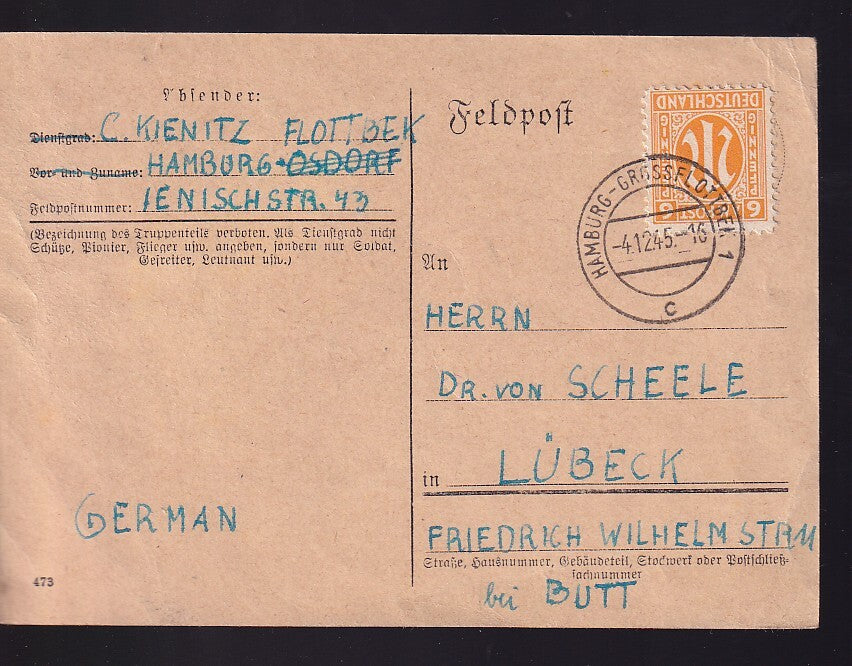 Absender:
Dienstgrad: C. KIENITZ FLOTTBEK
Vor- und Zuname: HAMBURG-OSDORF
Feldpostnummer: IENISCHSTR. 43
(Bezeichnung des Truppenteils verboten. Als Dienstgrad nicht
Schütze, Pionier, Flieger usw. angeben, sondern nur Soldat,
Gefreiter, Leutnant usw.)
GERMAN
473
Feldpost
DEUTSCHLAND
PFENNIG
PFENNIG
6 POST 6
M
HAMBURG-GROSSFLOTTBEK 1
-4.12.45.-16
c
An
HERRN
DR. VON SCHEELE
in LÜBECK
FRIEDRICH WILHELM STR 11
Straße, Hausnummer, Gebäudeteil, Stockwerk oder Postschließ-
fachnummer
bei BUTT